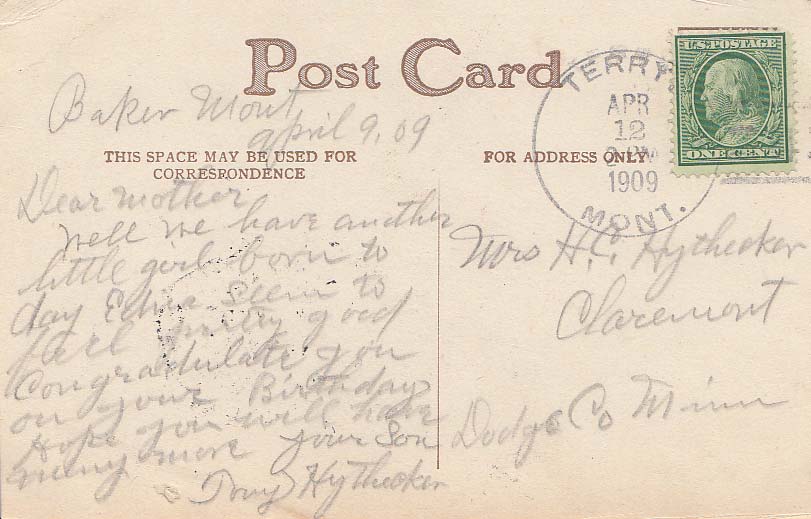 Post Card
Baker Mont
April 9, 09
THIS SPACE MAY BE USED FOR
CORRESPONDENCE
Dear Mother
Well we have another
little girl born to
day seem to
feel pretty good
Congradulate you
on your Birthday
Hope you will have
many more your Son
Hythecker
FOR ADDRESS ONLY
TERRY
APR
12
PM
1909
MONT.
U.S. POSTAGE
ONE CENT
Mrs H.C. Hythecker
Claremont
Dodge Co Minn